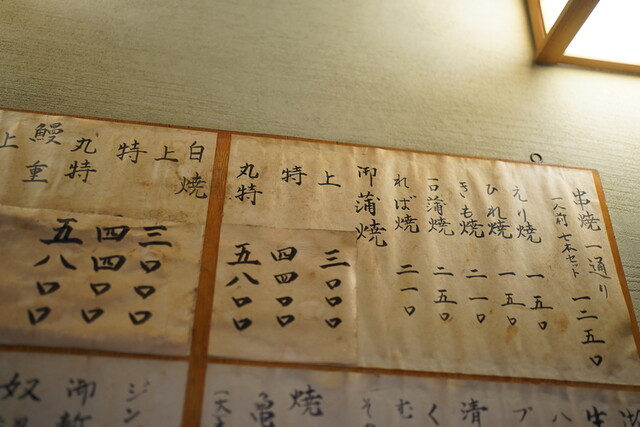 串焼一通り 一二五〇
一人前 七本セット
えり焼 一五〇
ひれ焼 一五〇
きも焼 二一〇
一口蒲焼 二五〇
れば焼 二一〇
御蒲焼
上 三〇〇〇
特 四四〇〇
丸特 五八〇〇
白焼
上 三〇〇〇
特 四四〇〇
丸特 五八〇〇
鰻重
上
生
ハ
プ
清
く
む
焼
亀
ジン
御新
奴